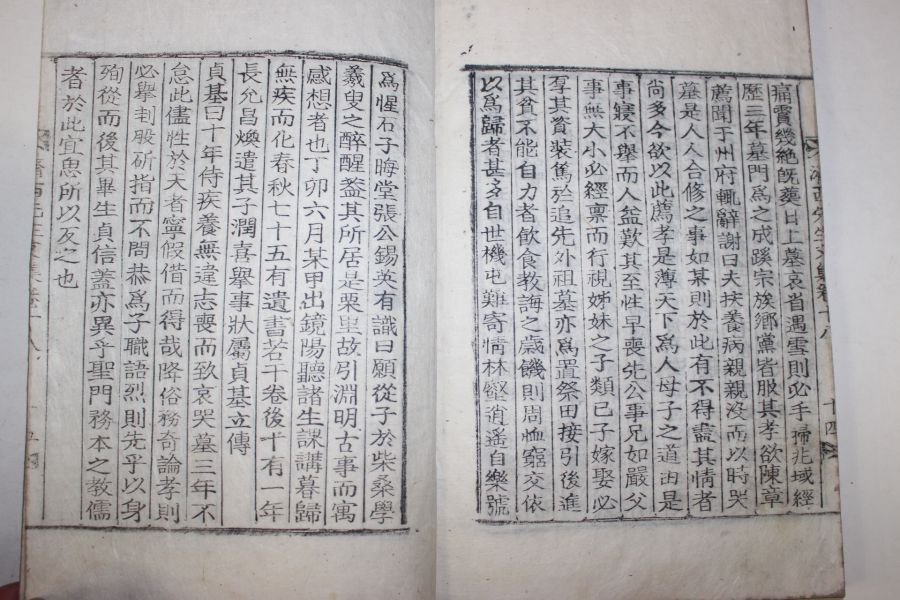 痛霣幾絶旣葬日上墓哀省遇雪則必手掃兆域經
歷三年墓門爲之成蹊宗族鄕黨皆服其孝欲陳章
薦聞于州府輒辭謝曰夫扶養病親親沒而以時哭
墓是人人合修之事如某則於此有不得盡其情者
尙多今欲以此薦孝是薄天下爲人母子之道由是
事寢不擧而人益歎其至性早喪先公事兄如嚴父
事無大小必經稟而行視姊妹之子類已子嫁娶必
其資裝篤於追先外祖墓亦爲置祭田接引後進
其貧不能自力者飮食敎誨之歲饑則周恤窮交依
以爲歸者甚多自世機屯難寄情林壑逍遙自樂號
十四
爲惺石子晦堂張公錫英有識曰願從子於柴桑學
羲叟之醉醒盖其所居是栗里故引淵明古事而寓
感想者也丁卯六月某甲出鏡陽聽諸生課講暮歸
無疾而化春秋七十五有遺書若干卷後十有一年
長允昌煥遣其子潤喜擧事狀屬貞基立傳
貞基曰十年侍疾養無違志喪而致哀哭墓三年不
怠此儘性於天者寧假借而得哉降俗務奇論孝則
必擧刲股斫指而不問恭爲子職語烈則先乎以身
殉從而後其畢生貞信盖亦異乎聖門務本之敎儒
者於此宜思所以反之也